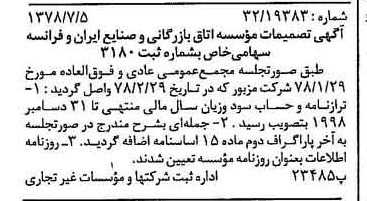 شماره: ۳۲/۱۹۳۸۳ ۱۳۷۸/۷/۵
آگهی تصمیمات مؤسسه اتاق بازرگانی و صنایع ایران و فرانسه
سهامی خاص بشماره ثبت ۳۱۸۰
طبق صورتجلسه مجمع عمومی عادی و فوق العاده مورخ
۷۸/۱/۲۹ شرکت مزبور که در تاریخ ۷۸/۲/۲۹ واصل گردید: ۱-
ترازنامه و حساب سود وزیان سال مالی منتهی تا ۳۱ دسامبر
۱۹۹۸ بتصویب رسید. ۲- جمله‌ای بشرح مندرج در صورتجلسه
به آخر پاراگراف دوم ماده ۱۵ اساسنامه اضافه گردید. ۳- روزنامه
اطلاعات بعنوان روزنامه مؤسسه تعیین شدند.
پ۲۳۴۸۵ اداره ثبت شرکتها و مؤسسات غیر تجاری